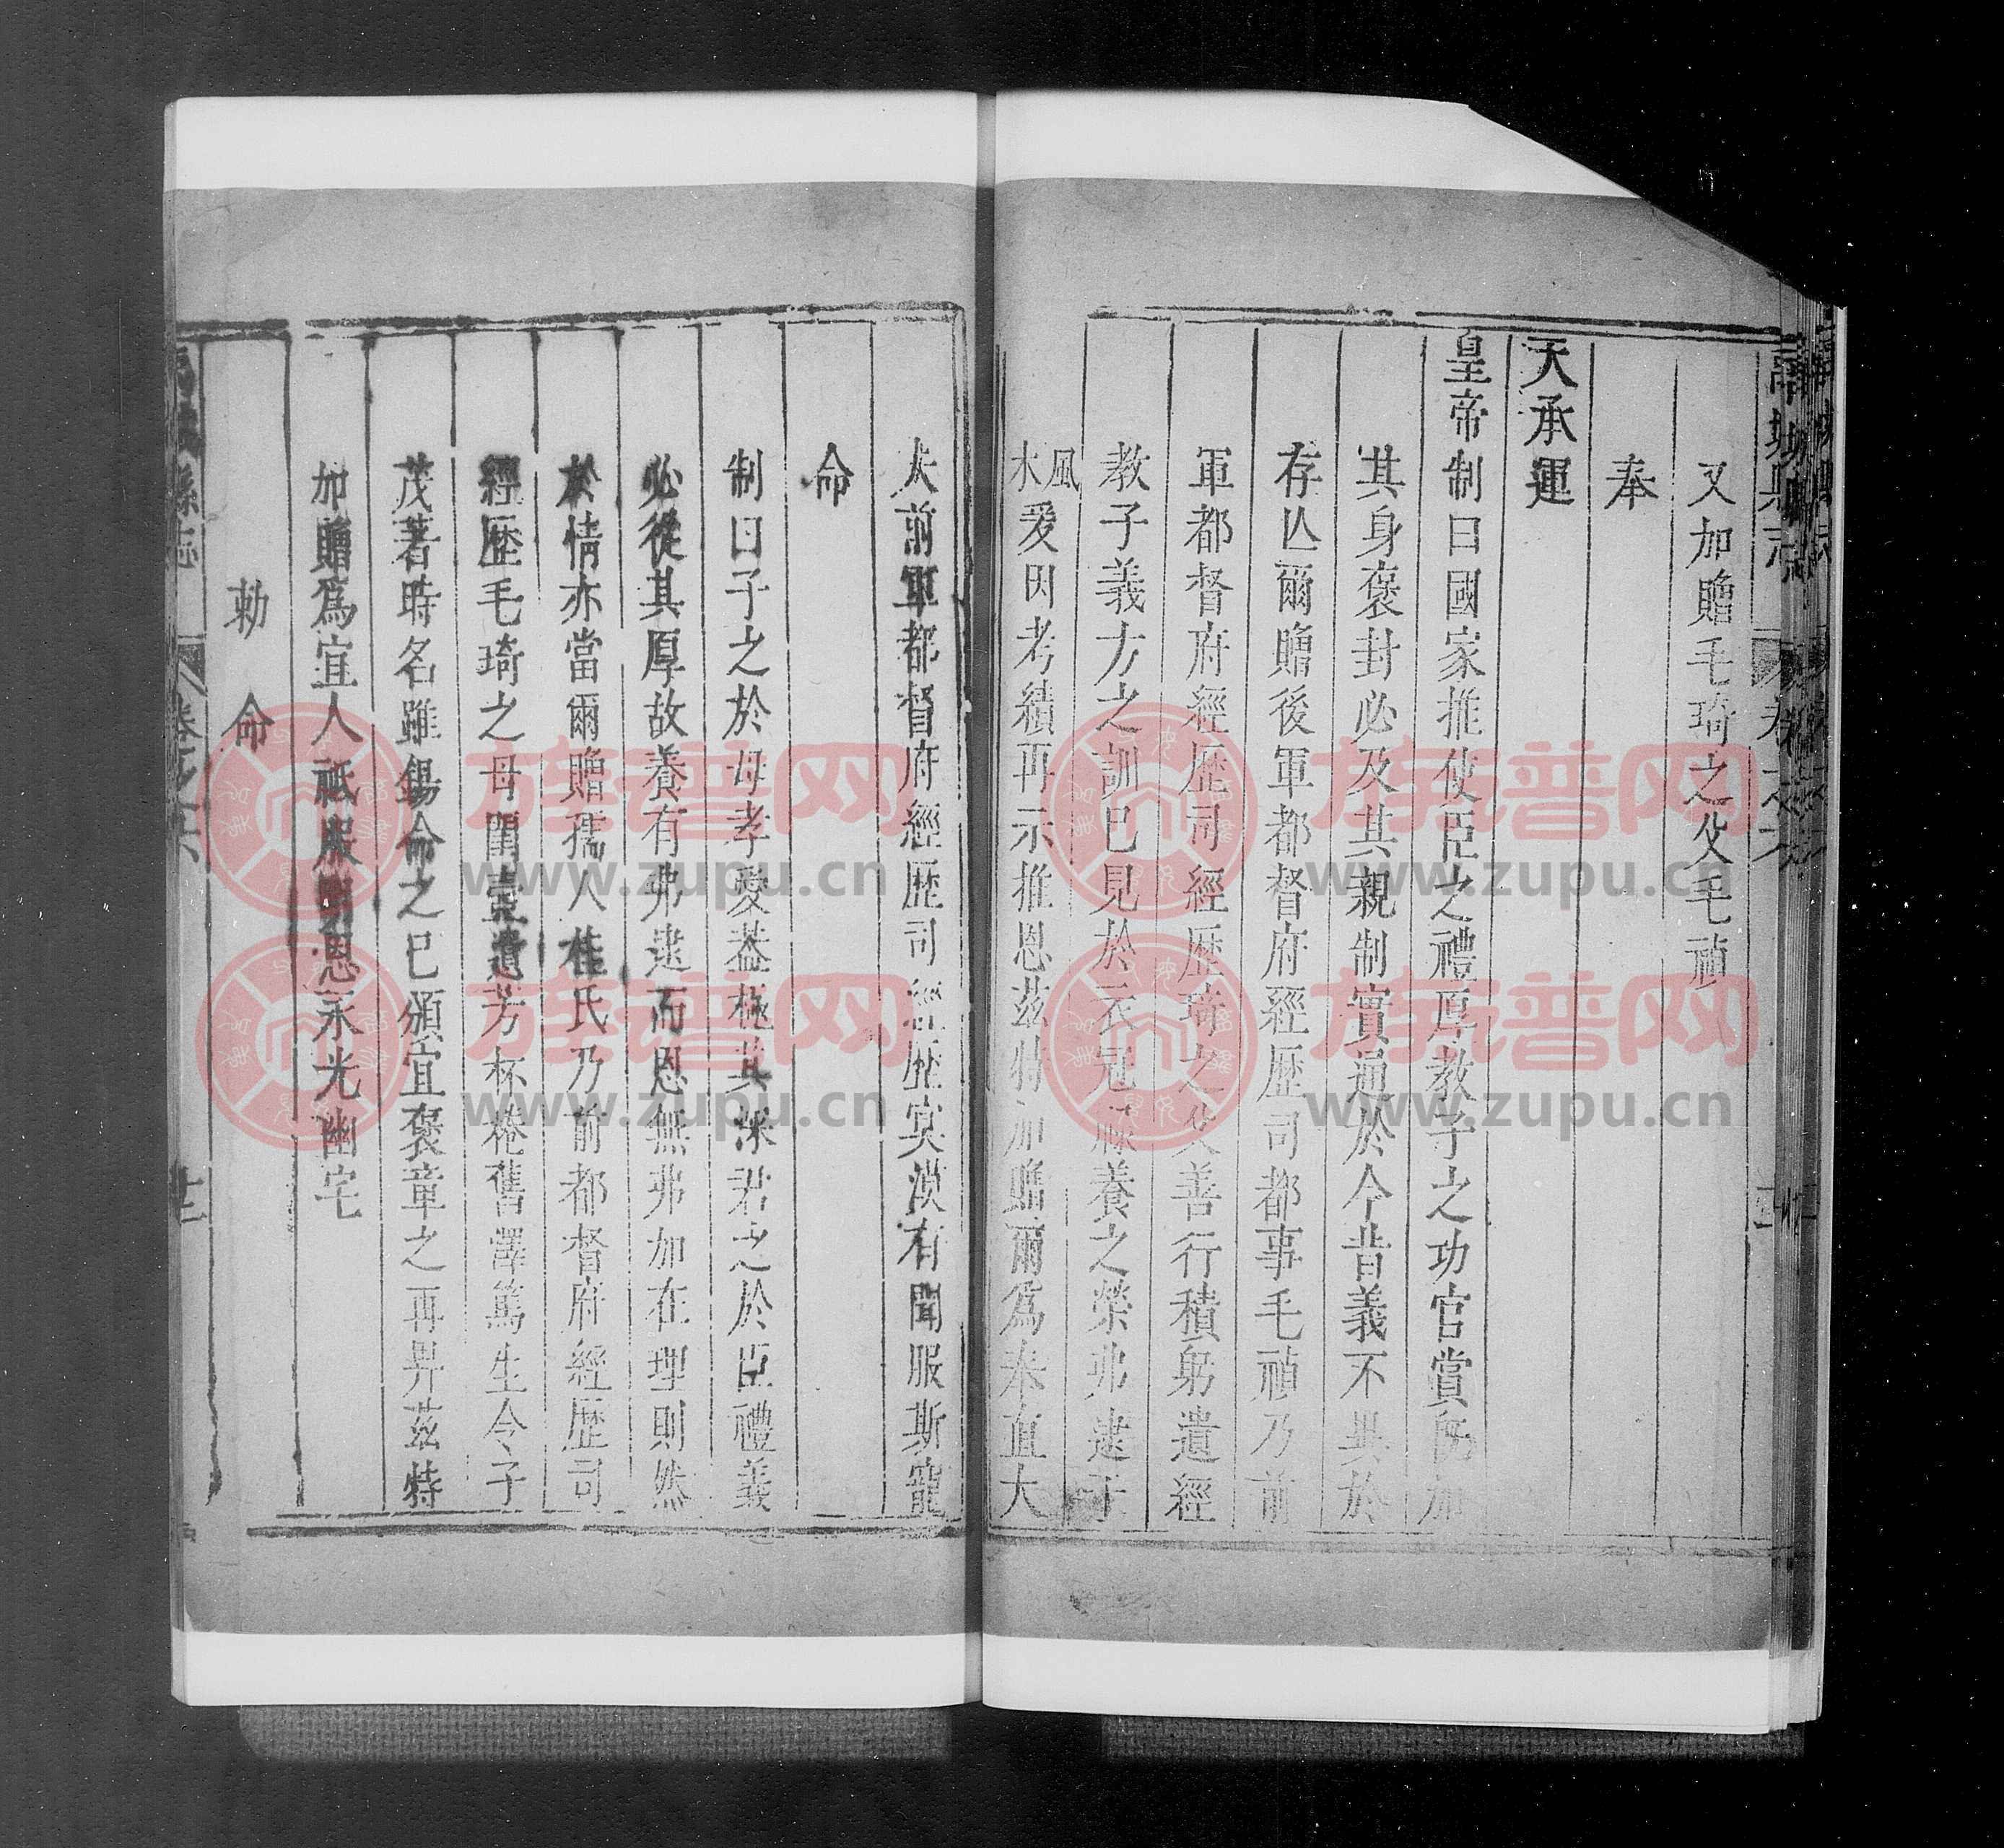 又加贈毛琦之父毛禎
奉
天承運
皇帝制曰國家推使臣之禮厚教子之功官賞所加
其身褒封必及其親制實通於今昔義不異於
存亾爾贈後軍都督府經歷司都事毛禎乃前
軍都督府經歷司經歷琦之父善行積躬遺經
教子義方之訓已見於衣冠祿養之榮弗逮于
風木爰因考績再示推恩兹特加贈爾爲奉直大
夫前軍都督府經歷司經歷冥漠有聞服斯寵
命
制曰子之於母孝愛葢極其深君之於臣禮義
必從其厚故養有弗逮而恩無弗加在理則然
於情亦當爾贈孺人桂氏乃前都督府經歷司
經歷毛琦之母閨壼遺芳杯棬舊澤篤生令子
茂著時名雖錫命之已頒宜褒章之再畀茲特
加贈爲宜人祗服明恩永光幽宅
勅命
縣志 卷之六 廿二
族譜网
www.zupu.cn
族譜网
www.zupu.cn
族譜网
www.zupu.cn
族譜网
www.zupu.cn